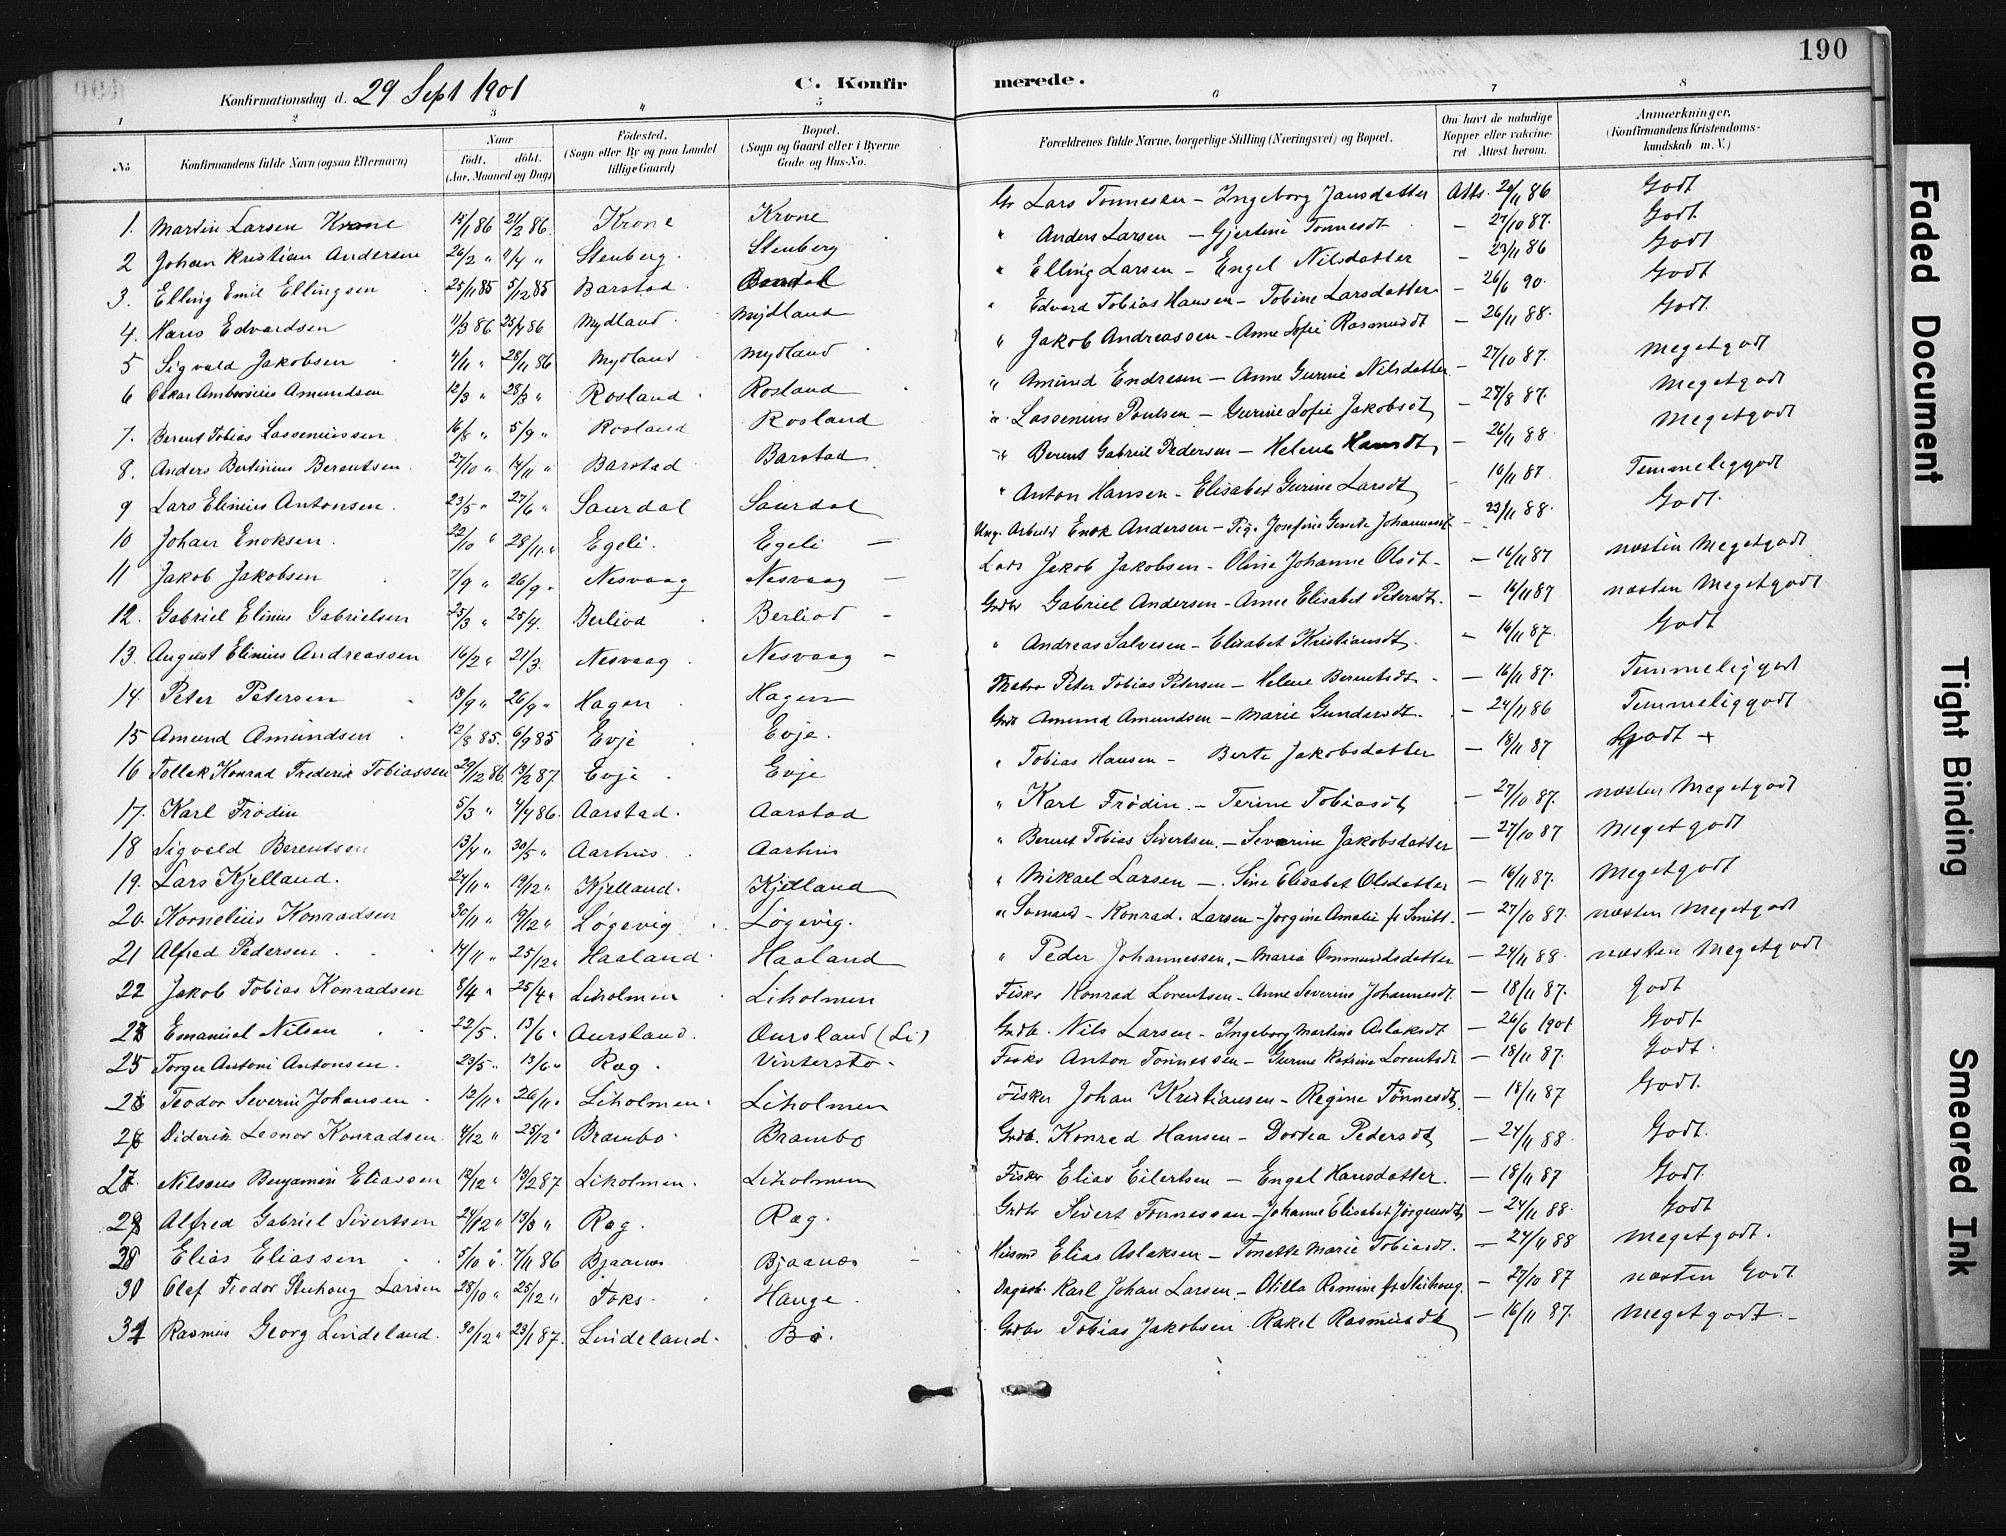 190
Konfirmationsdag d. 29 Sept 1901
C. Konfirmerede.
1 2 3 4 5 6 7 8
No. Konfirmandens fulde Navn (ogsaa Efternavn) Naar født. døbt. (Aar, Maaned og Dag) Fødested. (Sogn eller By og paa Landet tillige Gaard) Bopæl. (Sogn og Gaard eller i Byerne Gade og Hus-No. Forældrenes fulde Navne, borgerlige Stilling (Næringsvei) og Bopæl. Om havt de naturlige Kopper eller vakcineret Attest herom. Anmærkninger. (Konfirmandens Kristendomskundskab m. V.)
1. Martin Larsen Krone 15/1 86 21/2 86. Krone Krone Gr Lars Tonnesen - Ingeborg Jansdatter Atts. 24/11 86 Godt
2 Johan Kristian Andersen 26/2 " 11/4 " Stenberg. Stenberg " Anders Larsen - Gjertine Tonnesdt - 27/10 87. Godt.
3. Elling Emil Ellingsen 25/11 85 5/12 85 Barstad " Elling Larsen - Engel Nilsdatter - 23/11 86 Godt
4. Hans Edvardsen 11/3 86 25/4 86 Mydland Mydland " Edvard Tobias Hansen - Tobine Larsdatter - 26/6 90. Godt
5 Sigvald Jakobsen 4/11 " 28/11 86 Mydland Mydland " Jakob Andreassen - Anne Sofie Rasmusdt - 26/11 88. Godt.
6 Oskar Ambrosius Amundsen 12/3 " 28/3 " Rosland Rosland " Amund Endresen - Anne Gurine Nilsdatter - 27/10 87. Megetgodt
7. Berent Tobias Lassenussen 16/8 " 5/9 " Rosland Rosland " Lassenius Poulsen - Gurine Sofie Jakobsdt - 27/8 87. Megetgodt
8. Anders Bertinius Berentsen. 27/10 " 14/11 " Barstad Barstad " Berent Gabriel Pedersen - Helene Hansdt - 26/11 88 Megetgodt
9 Lars Elinius Antonsen. 23/5 " 27/6 " Saurdal Saurdal " Anton Hansen - Elisabet Gurine Larsdt - 16/11 87 Temmeliggodt
10 Johan Enoksen. 22/10 " 28/11 " Egeli. Egeli - Ung. Arbeid Enok Andersen - Pig. Josefine Johannesdt - 23/11 88. Godt.
11 Jakob Jakobsen 7/9 " 26/9 " Nesvaag Nesvaag - Lods Jakob Jakobsen - Oline Johanne Olsdt - 16/11 87 næsten Megetgodt
12. Gabriel Elinus Gabrielsen 25/3 " 25/4. Berliod Berliod - Grdbr Gabriel Andersen - Anne Elisabet Petersdt. - 16/11 87 næsten Megetgodt
13. August Elinius Andreassen 16/2 " 21/3. Nesvaag Nesvaag - " Andreas Salvesen - Elisabet Kristiansdt. - 16/11 87. Godt
14. Peter Petersen 13/9 " 26/9 " Hagen Hagen Peter Tobias Petersen - Helene Berentsdt - - 16/11 87. Temmeliggodt
15 Amund Amundsen 12/8 85. 6/9 85 Evje Evje. Grdb Amund Amundsen - Marie Gundersdt. - 24/11 86 Temmeliggodt
16 Tollak Konrad Frederik Tobiassen 29/12 86. 13/2 87. Evje Evje " Tobias Hansen - Berte Jakobsdatter - 18/11 87 Godt +
17. Karl Frödin 5/3 " 4/4 86. Aarstad. Aarstad " Karl Frödin. - Terine Tobiasdt - 27/10 87. næsten Megetgodt
18 Sigvald Berentsen 13/4 " 30/5 " Aarhus Aarhus " Berent Tobias Sivertsen. - Severine Jakobsdatter - 27/10 87 Megetgodt
19. Lars Kjelland. 24/11 " 19/12 " Kjelland. Kjelland " Mikael Larsen - Sine Elisabet Olsdatter - 16/11 87. Megetgodt
20. Kornelius Konradsen 30/11 " 19/12 " Løgevig Løgevig. " Sømand - Konrad. Larsen - Jorgine Amalie f. Smitt. - 27/10 87. næsten Megetgodt
21 Alfred Pedersen 14/11 " 25/12 " Haaland Haaland " Peder Johannessen. - Maria Ommundsdatter - 24/11 88. næsten Megetgodt
22 Jakob Tobias Konradsen 8/4 " 25/4 " Liholmen Liholmen Fisker Konrad Lorentsen - Anne Severine Johannesdt. - 18/11 87. godt
23 Emanuel Nilsen 22/5. 13/6 " Aursland. Aursland (Li) Grdb. Nils Larsen - Ingeborg Martine Aslaksdt - 26/6 1901 Godt
25 Torger Antoni Antonsen. 23/5 " 13/6 " Ræg. Vintersto- Fisker Anton Tonnessen - Gurine Katrine Lorentsdt - 18/11 87. Godt.
25 Teodor Severin Johansen 12/11 " 26/11 " Liholmen. Liholmen Fisker Johan Kristiansen - Regine Tönnesdt. - 18/11 87 Godt.
26 Diderik Leonor Konradsen 4/12 " 25/12 " Brambo. Brambo Grdb. Konrad Hansen - Dortea Pedersdt - 24/11 88. Godt.
27 Nilsius Benjamin Eliassen 12/12 " 13/2 87 Liholmen. Liholmen Fisker Elias Eilertsen - Engel Hansdatter. - 18/11 87 Godt.
28 Alfred Gabriel Sivertsen 24/12 " 13/3 " Ræg. Ræg. Grdbr Sivert Tonnessen - Johanne Elisabet Jörgensdt - 24/11 88. Godt
29 Elias Eliassen 5/10 " 7/11 86 Bjaanes Bjaanes Husmd Elias Aslaksen - Tonette Marie Tobiasdt. - 24/11 88 Megetgodt.
30 Olaf Teodor Stuhoug Larsen 28/10 " 25/12 " Foks. Hauge. Dagarb. Karl Johan Larsen - Otilla Romine f. Stuhoug. - 27/10 87 næsten Godt.
31 Rasmus Georg Lindeland. 30/12 " 23/1 87. Lindeland. Bö. Grdbr Tobias Jakobsen Rakel Rasmusdt - 16/11 87. Megetgodt. -
Faded Document
Tight Binding
Smeared Ink